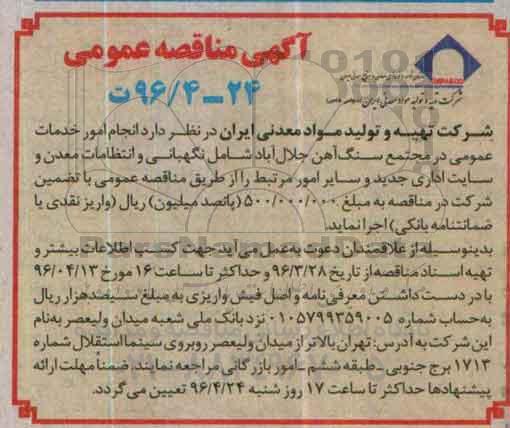 آگهی مناقصه عمومی
۲۴ـ۹۶/۴ت
IMPASCO
شرکت تهیه و تولید مواد معدنی ایران
شرکت تهیه و تولید مواد معدنی ایران در نظر دارد انجام امور خدمات
عمومی در مجتمع سنگ آهن جلال آباد شامل نگهبانی و انتظامات معدن و
سایت اداری جدید و سایر امور مرتبط را از طریق مناقصه عمومی با تضمین
شرکت در مناقصه به مبلغ ۵۰۰/۰۰۰/۰۰۰ (پانصد میلیون) ریال (واریز نقدی یا
ضمانتنامه بانکی) اجرا نماید.
بدینوسیله از علاقمندان دعوت به‌عمل می آید جهت کسب اطلاعات بیشتر و
تهیه اسناد مناقصه از تاریخ ۹۶/۳/۲۸ و حداکثر تا ساعت ۱۶ مورخ ۹۶/۰۴/۱۳
با در دست داشتن معرفی نامه و اصل فیش واریزی به مبلغ سیصدهزار ریال
به حساب شماره ۰۱۰۵۷۹۹۳۵۹۰۰۵ نزد بانک ملی شعبه میدان ولیعصر به نام
این شرکت به آدرس: تهران بالاتر از میدان ولیعصر روبروی سینما استقلال شماره
۱۷۱۳ برج جنوبی ـ طبقه ششم ـ امور بازرگانی مراجعه نمایند. ضمناً مهلت ارائه
پیشنهادها حداکثر تا ساعت ۱۷ روز شنبه ۹۶/۴/۲۴ تعیین می گردد.